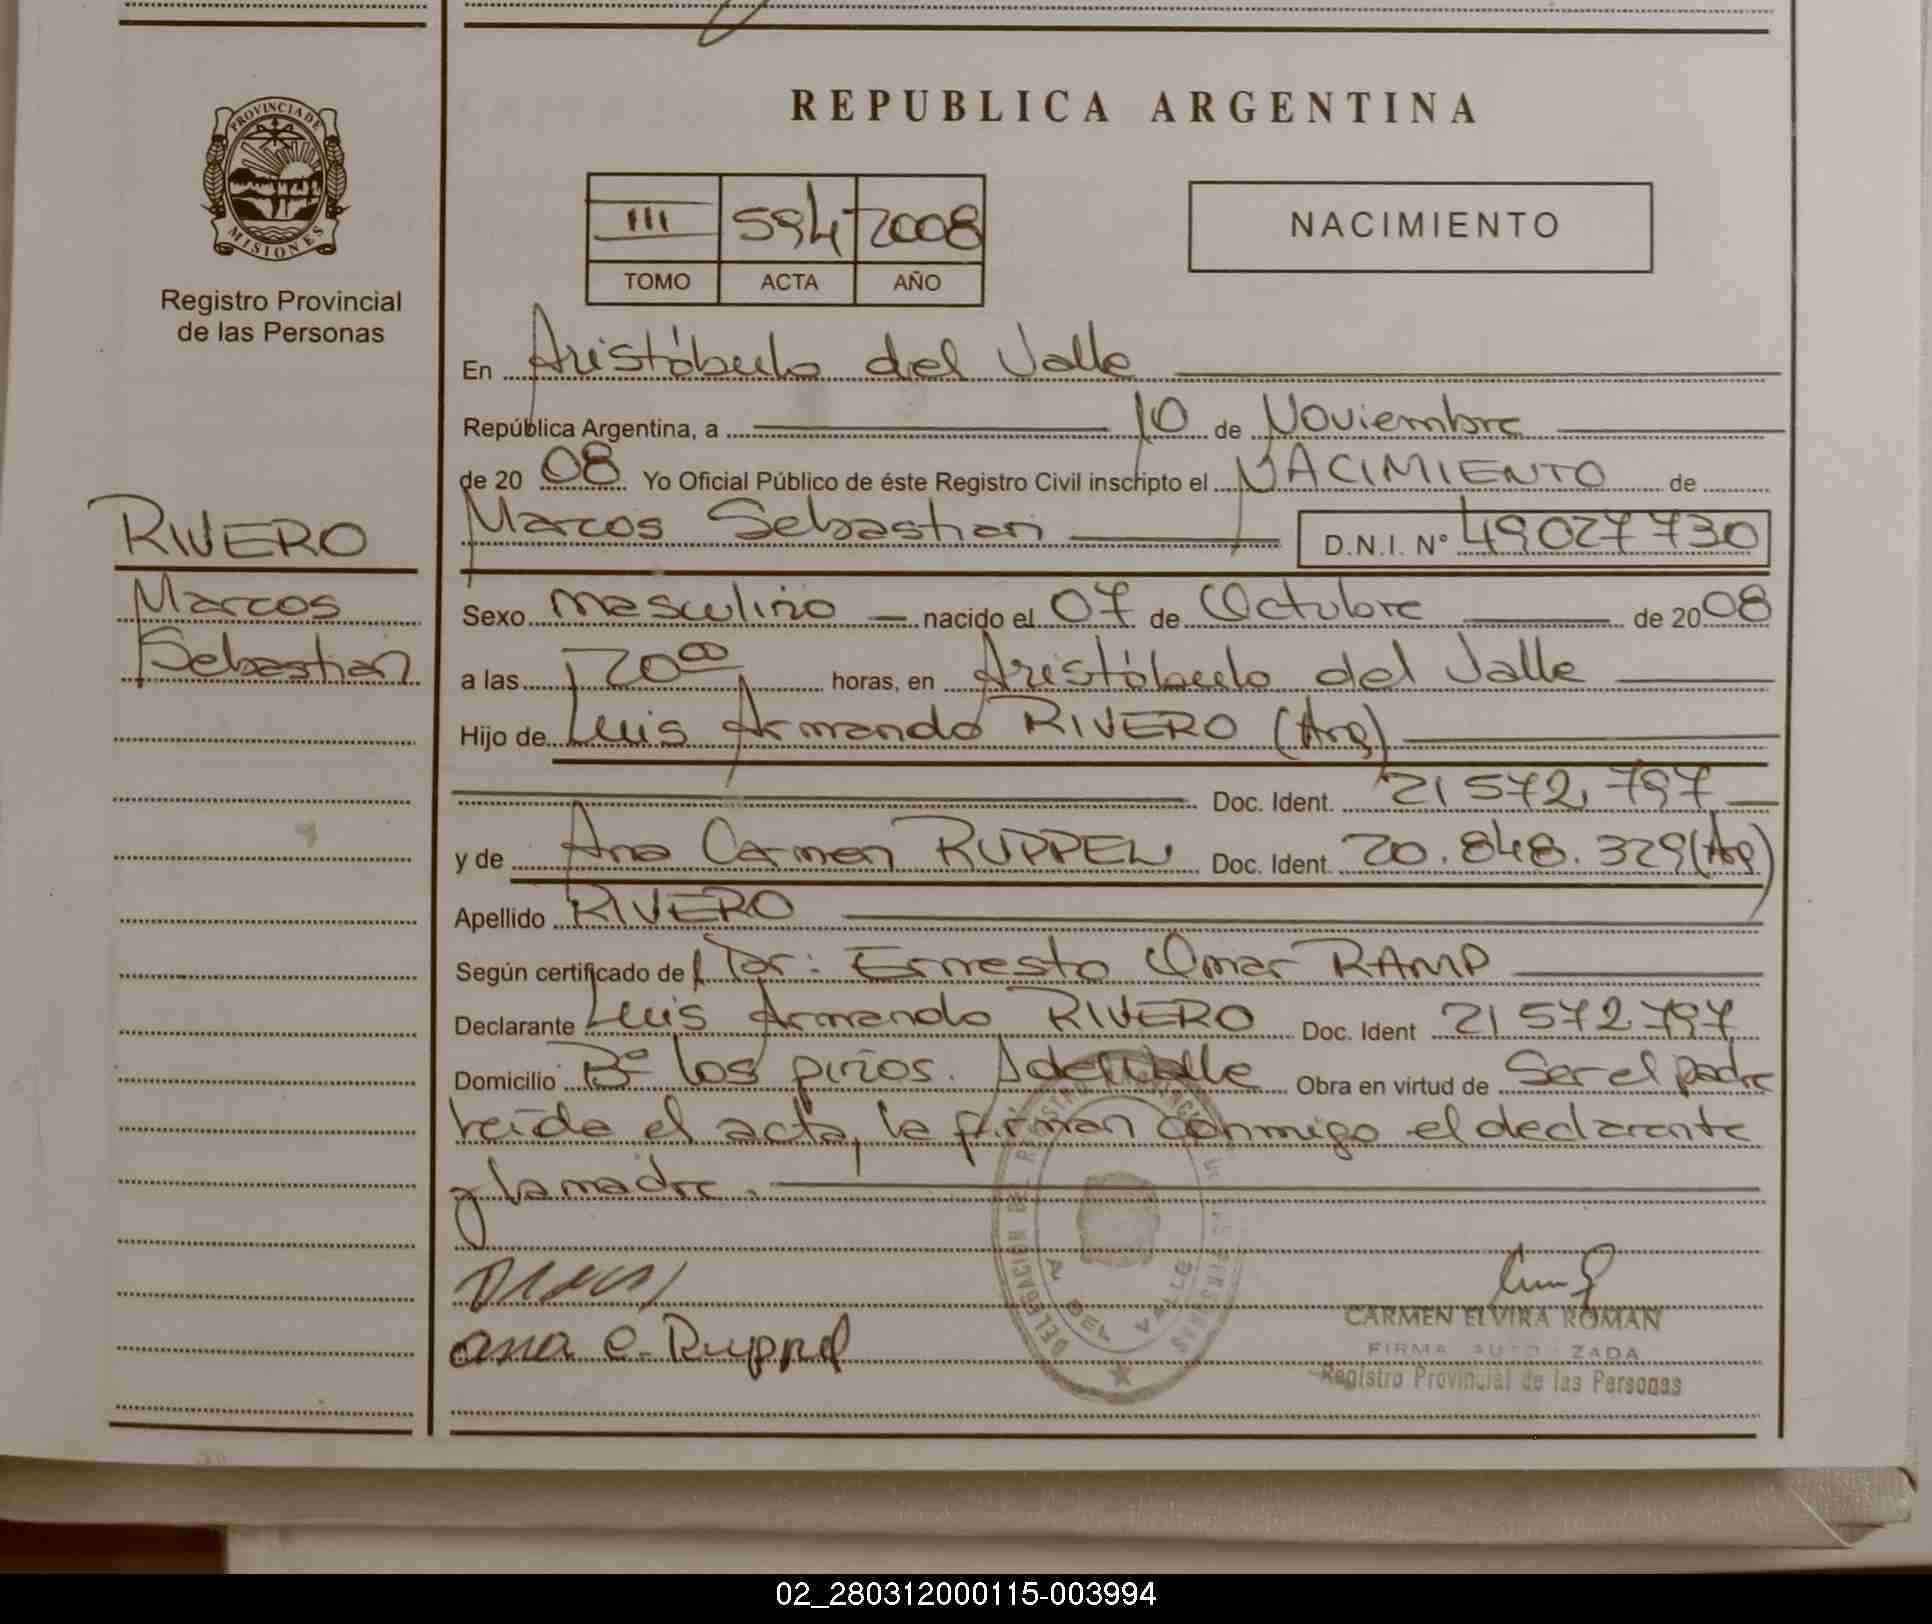 REPUBLICA ARGENTINA
PROVINCIA DE MISIONES
Registro Provincial
de las Personas
III 594 2008
TOMO ACTA AÑO
NACIMIENTO
En Aristóbulo del Valle
República Argentina, a 10 de Noviembre
de 20 08 Yo Oficial Público de éste Registro Civil inscripto el NACIMIENTO de
Marcos Sebastian D.N.I. N° 49027730
RIVERO
Marcos
Sebastian
Sexo masculino nacido el 07 de Octubre de 20 08
a las 20 00 horas, en Aristóbulo del Valle
Hijo de Luis Armando RIVERO (Arg)
Doc. Ident. 21 572.797
y de Ana Carmen RUPPEL Doc. Ident. 20.848.329 (Arg)
Apellido RIVERO
Según certificado de Dr: Ernesto Omar RAMP
Declarante Luis Armando RIVERO Doc. Ident 21 572 797
Domicilio B° los pinos. A del Valle Obra en virtud de Ser el padre
leida el acta, la firman conmigo el declarante
y la madre.
ana C. Ruppel
DELEGACION DEL REGISTRO PROVINCIAL DE LAS PERSONAS
A. DEL VALLE
CARMEN ELVIRA ROMAN
FIRMA AUTORIZADA
Registro Provincial de las Personas
02_280312000115-003994